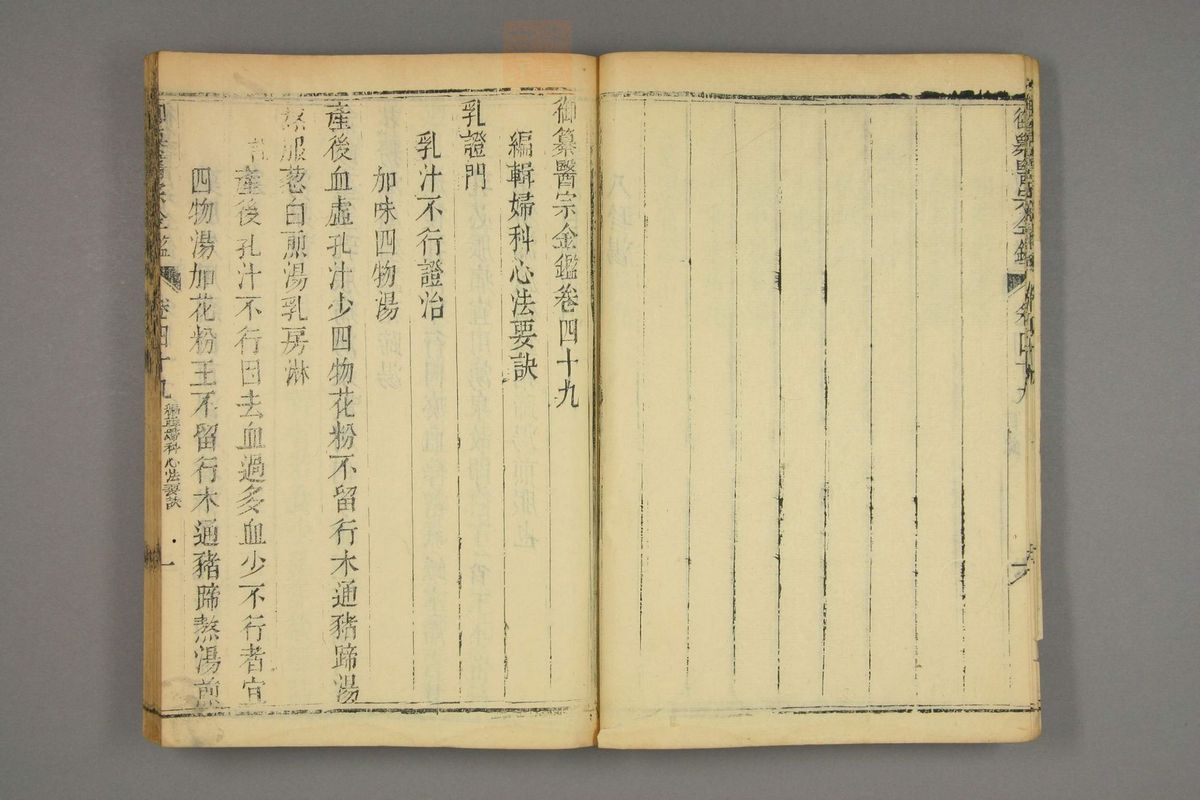 御纂醫宗金鑑卷四十九
編輯婦科心法要訣
乳證門
乳汁不行證治
加味四物湯
產後血虛孔汁少四物花粉不留行木通豬蹄湯
熬服葱白煎湯乳房淋
產後孔汁不行因去血過多血少不行者宜
四物湯加花粉王不留行木通豬蹄熬湯煎
卷四十九
編輯婦科心法要訣
一